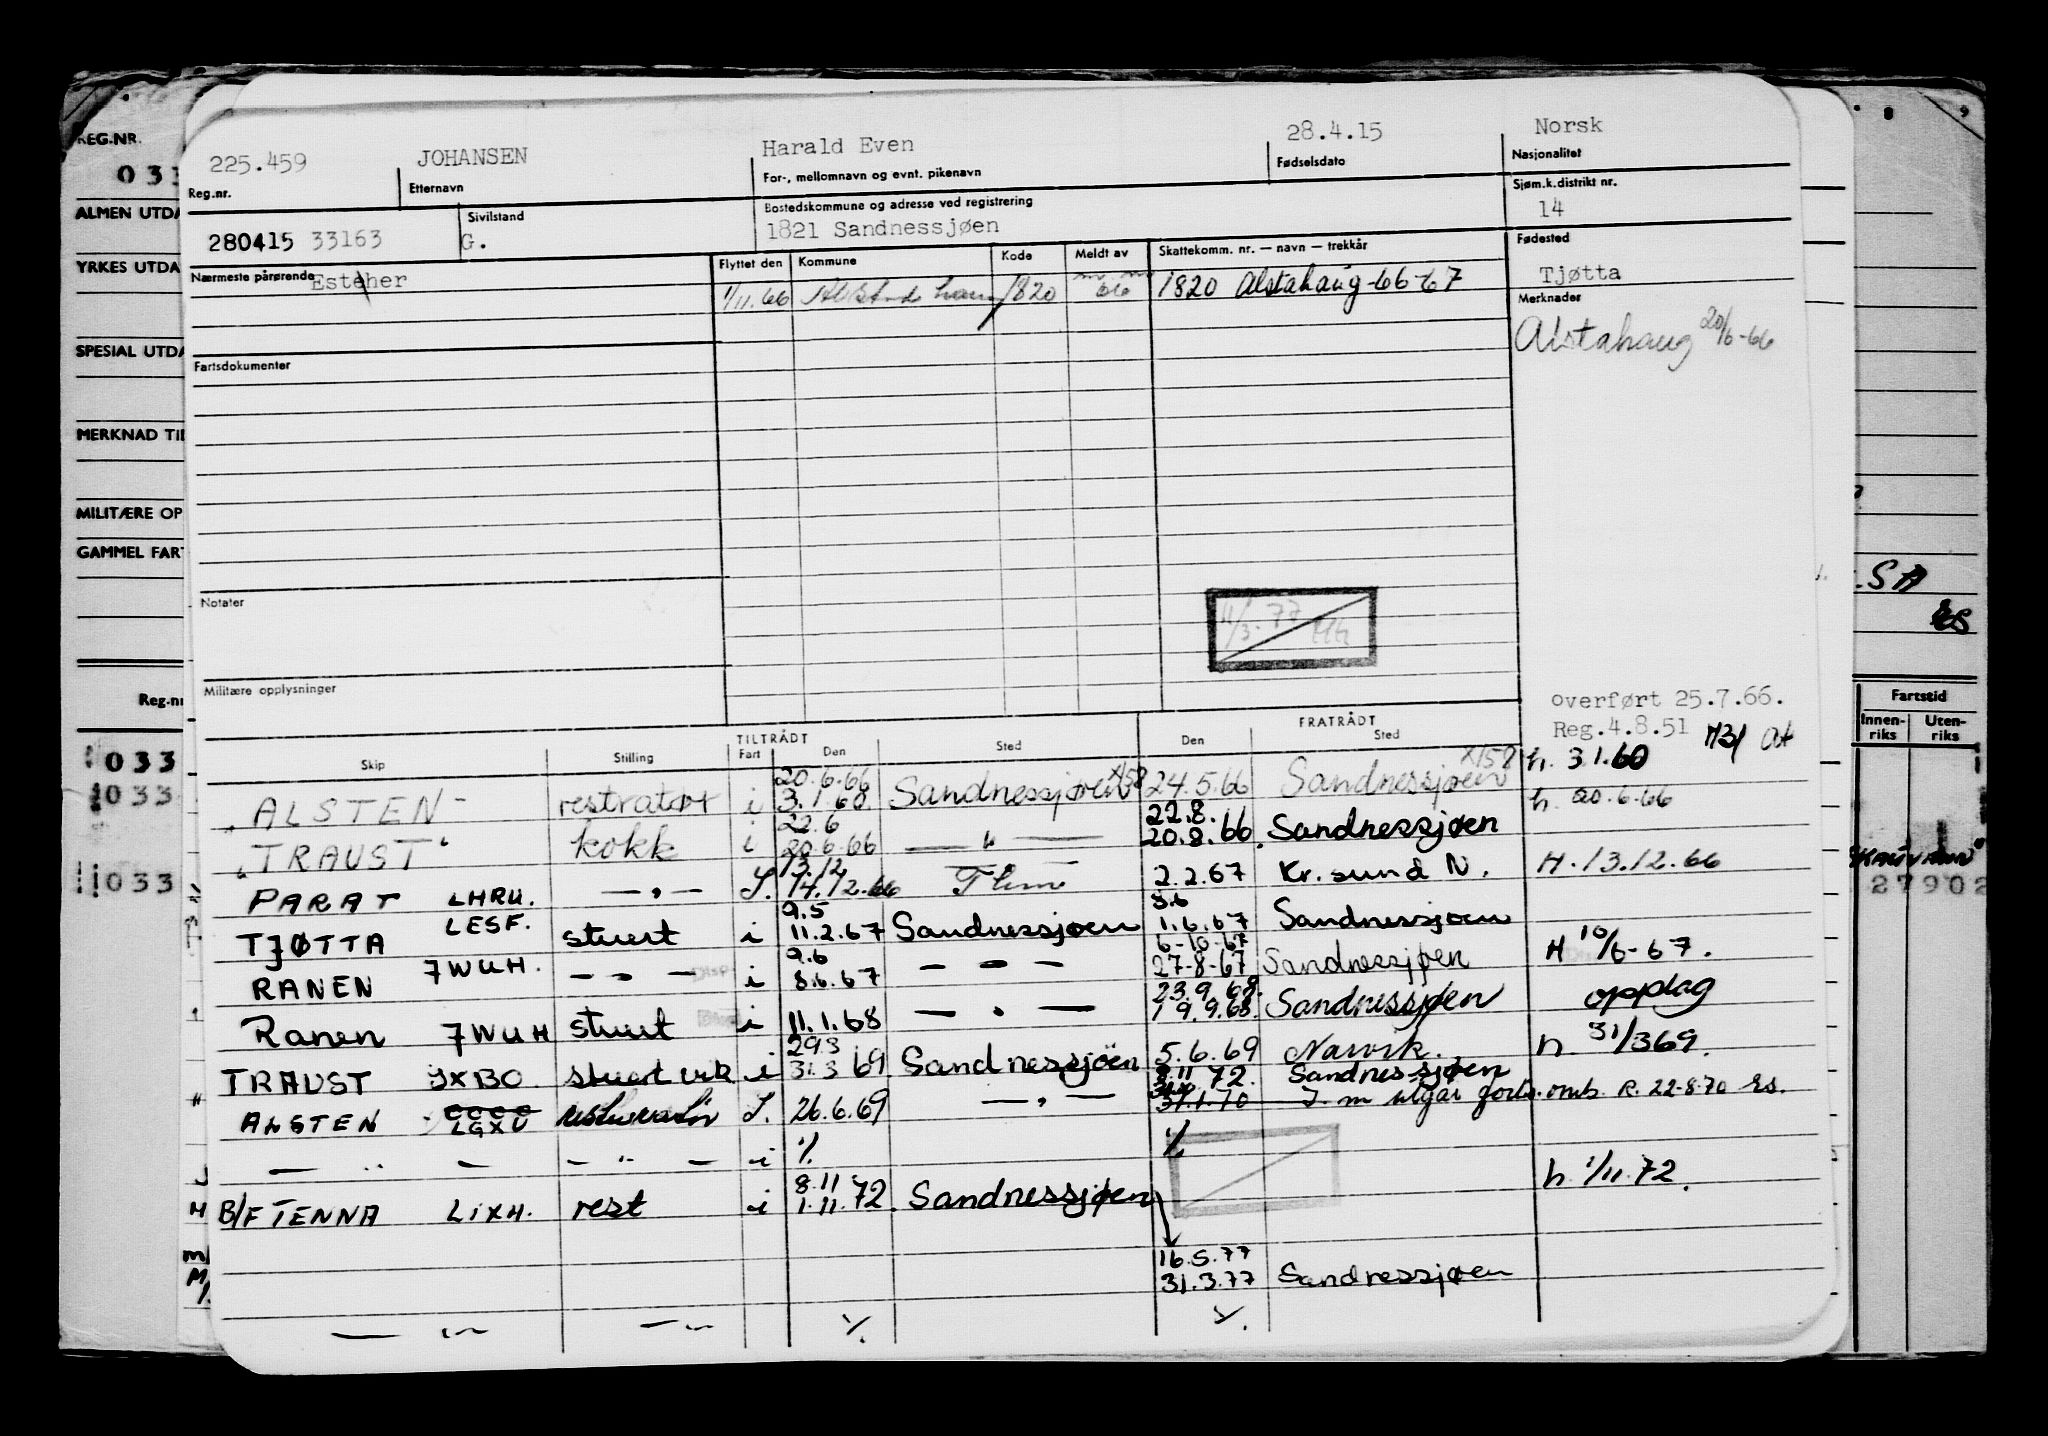 REG.NR.
033
ALMEN UTDA
YRKES UTDA
SPESIAL UTDA
MERKNAD TIL
MILITÆRE OP
GAMMEL FART
Reg.nr
033
033
033
225.459 JOHANSEN Harald Even 28.4.15 Norsk
Reg.nr. Etternavn For-, mellomnavn og evnt. pikenavn Fødselsdato Nasjonalitet
Sivilstand Bostedskommune og adresse ved registrering Sjøm.k.distrikt nr.
280415 33163 G. 1821 Sandnessjøen 14
Nærmeste pårørende Flyttet den Kommune Kode Meldt av Skattekomm. nr. — navn — trekkår Fødested
Esther 1/11.66 1820 66 1820 Alstahaug-66-67 Tjøtta
Merknader
Alstahaug 20/6-66
Fartsdokumenter
Notater
11/3.77
Militære opplysninger
overført 25.7.66.
Reg.4.8.51
TILTRÅDT FRATRÅDT
Skip Stilling Fart Den Sted Den Sted
20.6.66 x158 x158 h. 3.1.60
"ALSTEN" restratør i 3.1.60 Sandnessjøen 24.5.66 Sandnessjøen h. 20.6.66
22.6 22.8.
"TRAUST" kokk i 20.6.66 — " — 20.8.66. Sandnessjøen
13.12
PARAT LHRU. — " — S. 14.12.66 2.2.67 Kr.sund N. H. 13.12.66
9.5 8.6
TJØTTA LESF. stuert i 11.2.67 Sandnessjøen 1.6.67 Sandnessjøen
9.6 6-10-67
RANEN JWUH. — " — i 8.6.67 — " — 27-8-67 Sandnessjøen H 10/6-67.
23.9.68.
Ranen JWUH stuert i 11.1.68 — " — 19.9.68. Sandnessjøen opplag
29.3
TRAUST JXBO stuert vik i 31.3.69 Sandnessjöen 5.6.69 Narvik. h. 31/3 69.
72. Sandnessjøen
ALSTEN LGXU S. 26.6.69 — " — 31.1.70 R. 22-8-70
— " — — " — i 1/1. 1/1.
8.11
B/F TENNA LIXH. rest i 1.11.72. Sandnessjøen h. 1/11.72.
16.5.77
31.3.77 Sandnessjøen
— " — — " — 1/1. 1/1.
.SA
Fartstid
Innenriks Utenriks
27902